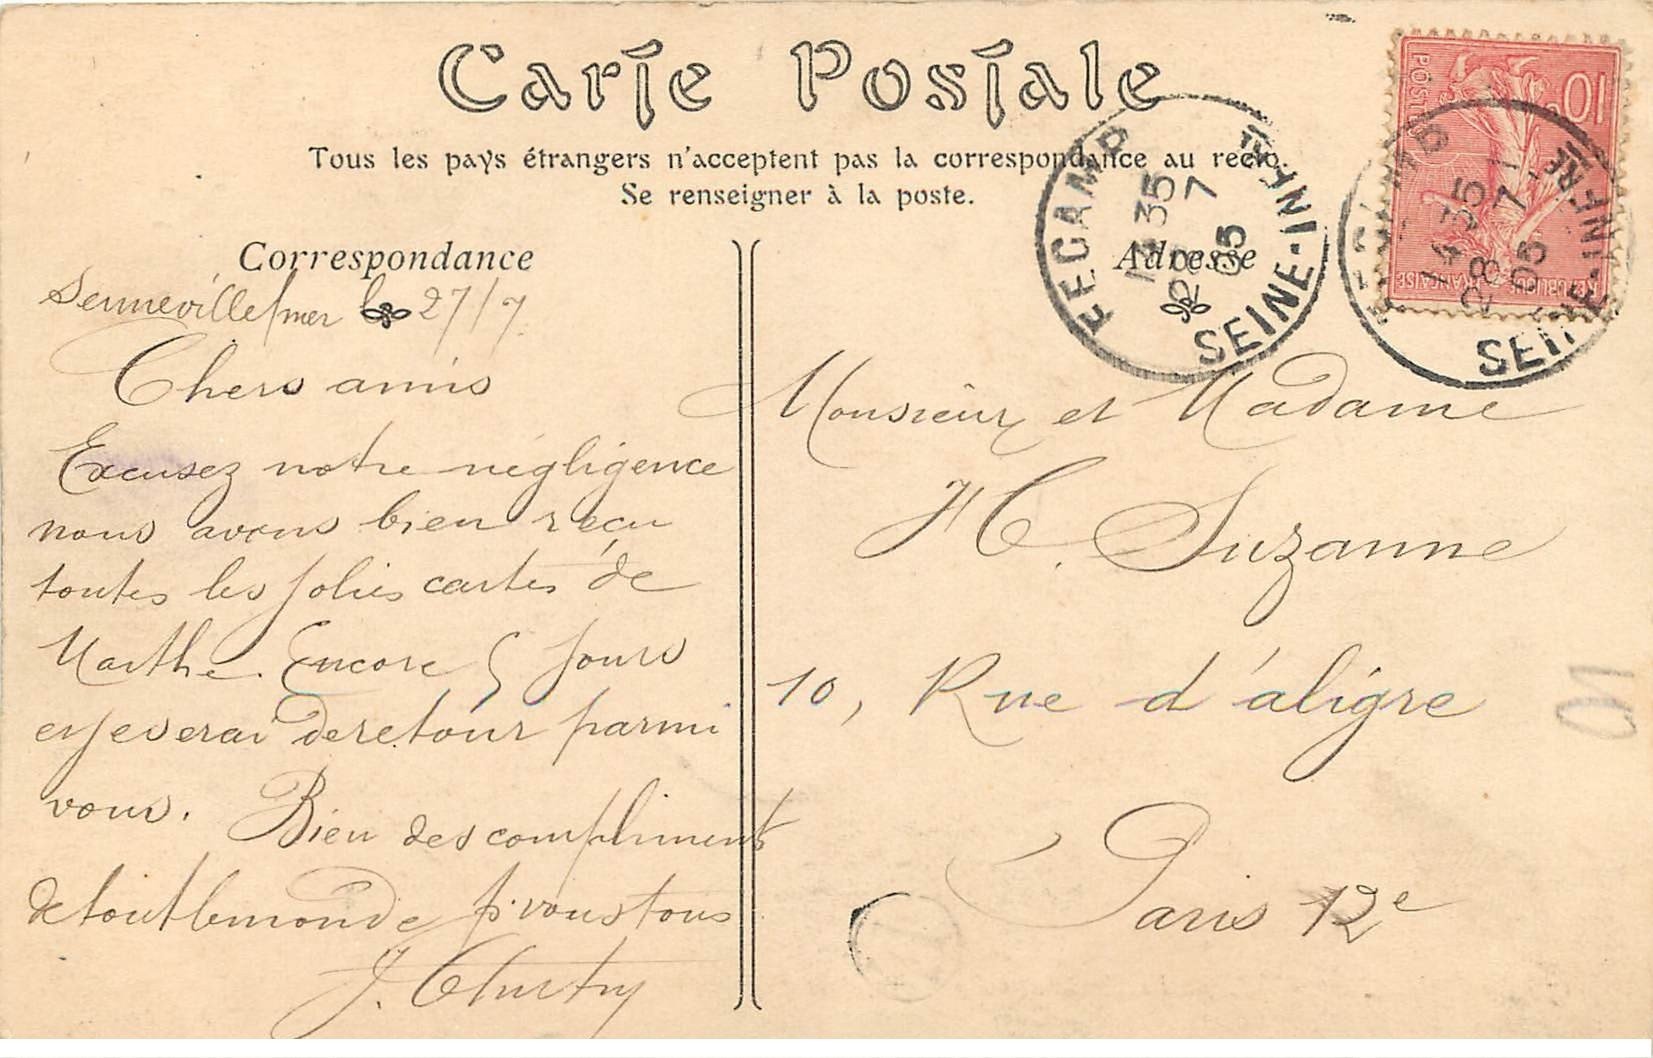 Carte Postale
Tous les pays étrangers n'acceptent pas la correspondance au recto.
Se renseigner à la poste.
Correspondance
Senneville s/mer le 27/7
Chers amis
Excusez notre négligence
nous avons bien reçu
toutes les jolies cartes de
Marthe. Encore 5 jours
et je serai de retour parmi
vous. Bien des compliments
de tout le monde pr vous tous
J.
Adresse
Monsieur et Madame
H. Suzanne
10, Rue d'aligre
Paris 12e
FECAMP
14 35
28 7
05
SEINE-INFRE
FECAMP
14 35
28 7
05
SEINE-INFRE
10c
POSTES
REPUBLIQUE FRANÇAISE